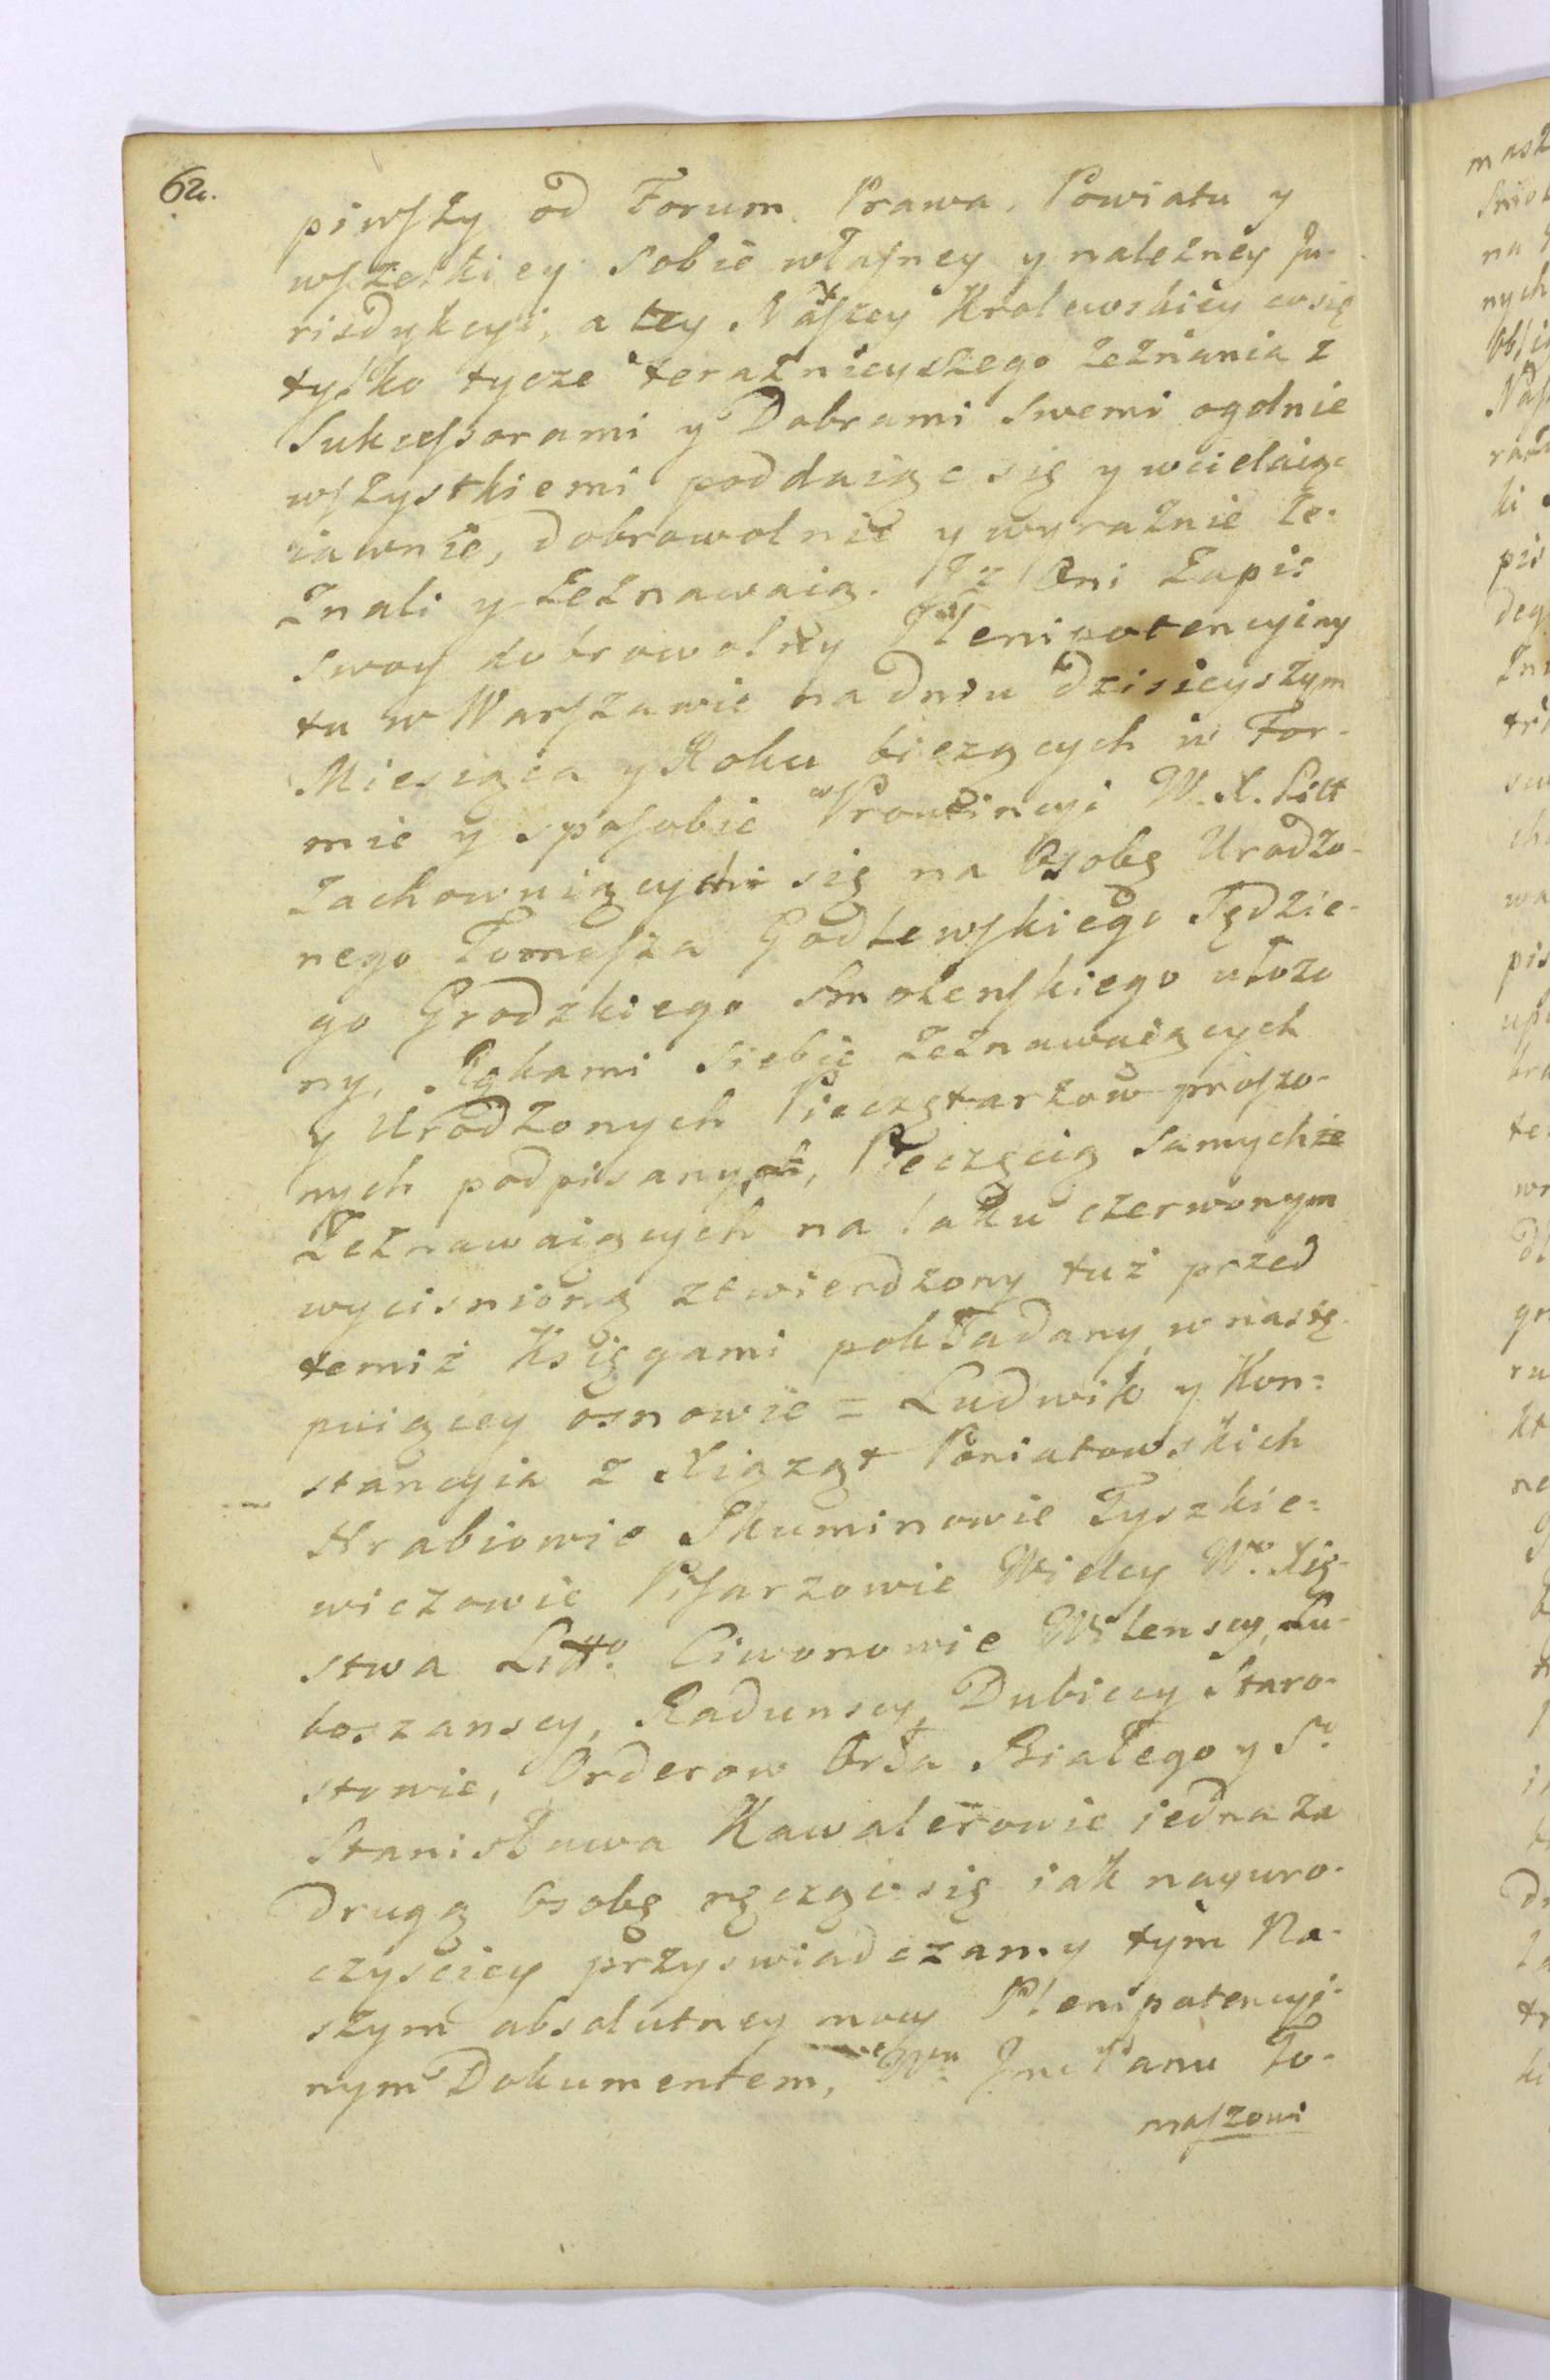 62.
piwſzy od Forum Prawa, Powiatu y
wſzelkiey sobie własney y należney Ju-
risdykcyi, a tey Naſzey Krolewskiey co się
tylko tycze teraznieyszego zeznania z
Sukceſsorami y Dobrami swemi ogolnie
wſzystkiemi poddaiąc się y wcielaiąc
iawnie, dobrowolnie y wyraznie ze-
znali y zeznawaią. Iz Oni Zapis
swoy dobrowolny Plenipotencyiny
tu w Warſzawie na dniu dzisieyszym
Miesiąca y Roku biezących w For-
mie y sposobie w Prowincyi W. X. Litt
zachowuiącym się na Osobę Urodzo-
nego Tomaſza Godlewſkiego Sędzie-
go Grodzkiego Smolenſkiego ułożo
ny, Rękami siebie zeznawaiących
y Urodzonych Pieczętarzow proszo-
nych podpisany, Pieczęcią samychże
Zeznawaiących na laku czerwonym
wycisnioną ztwierdzony tuż przed
temiż Księgami pokładany w nastę-
puiącey osnowie = Ludwik y Kon=
stancyia z Xiążąt Poniatowskich
Hrabiowie Skuminowie Tyszkie=
wiczowie Pisarzowie Wielcy Wo. Xię-
stwa Litto. Ciwonowie Wilenscy, Lu-
boszanscy, Radunscy, Dubiccy Staro-
stowie, Orderow Orła Białego y So.
Stanisława Kawalerowie iedna za
drugą Osobę ręcząc się iak nayuro-
czyściey przyswiadczamy tym Na-
szym absolutney mocy Plenipotencyi-
nym Dokumentem, Wu. Jmć Panu To-
maſzowi